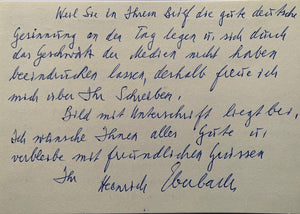 Weil Sie in Ihrem Brief die gute deutsche
Gesinnung an den Tag legen u, sich durch
das Geschwätz der Medien nicht haben
beeindrucken lassen, deshalb freue ich
mich über Ihr Schreiben.
Bild mit Unterschrift liegt bei,
Ich wünsche Ihnen alles Gute u,
verbleibe mit freundlichen Grüssen
Ihr Heinrich Eberbach